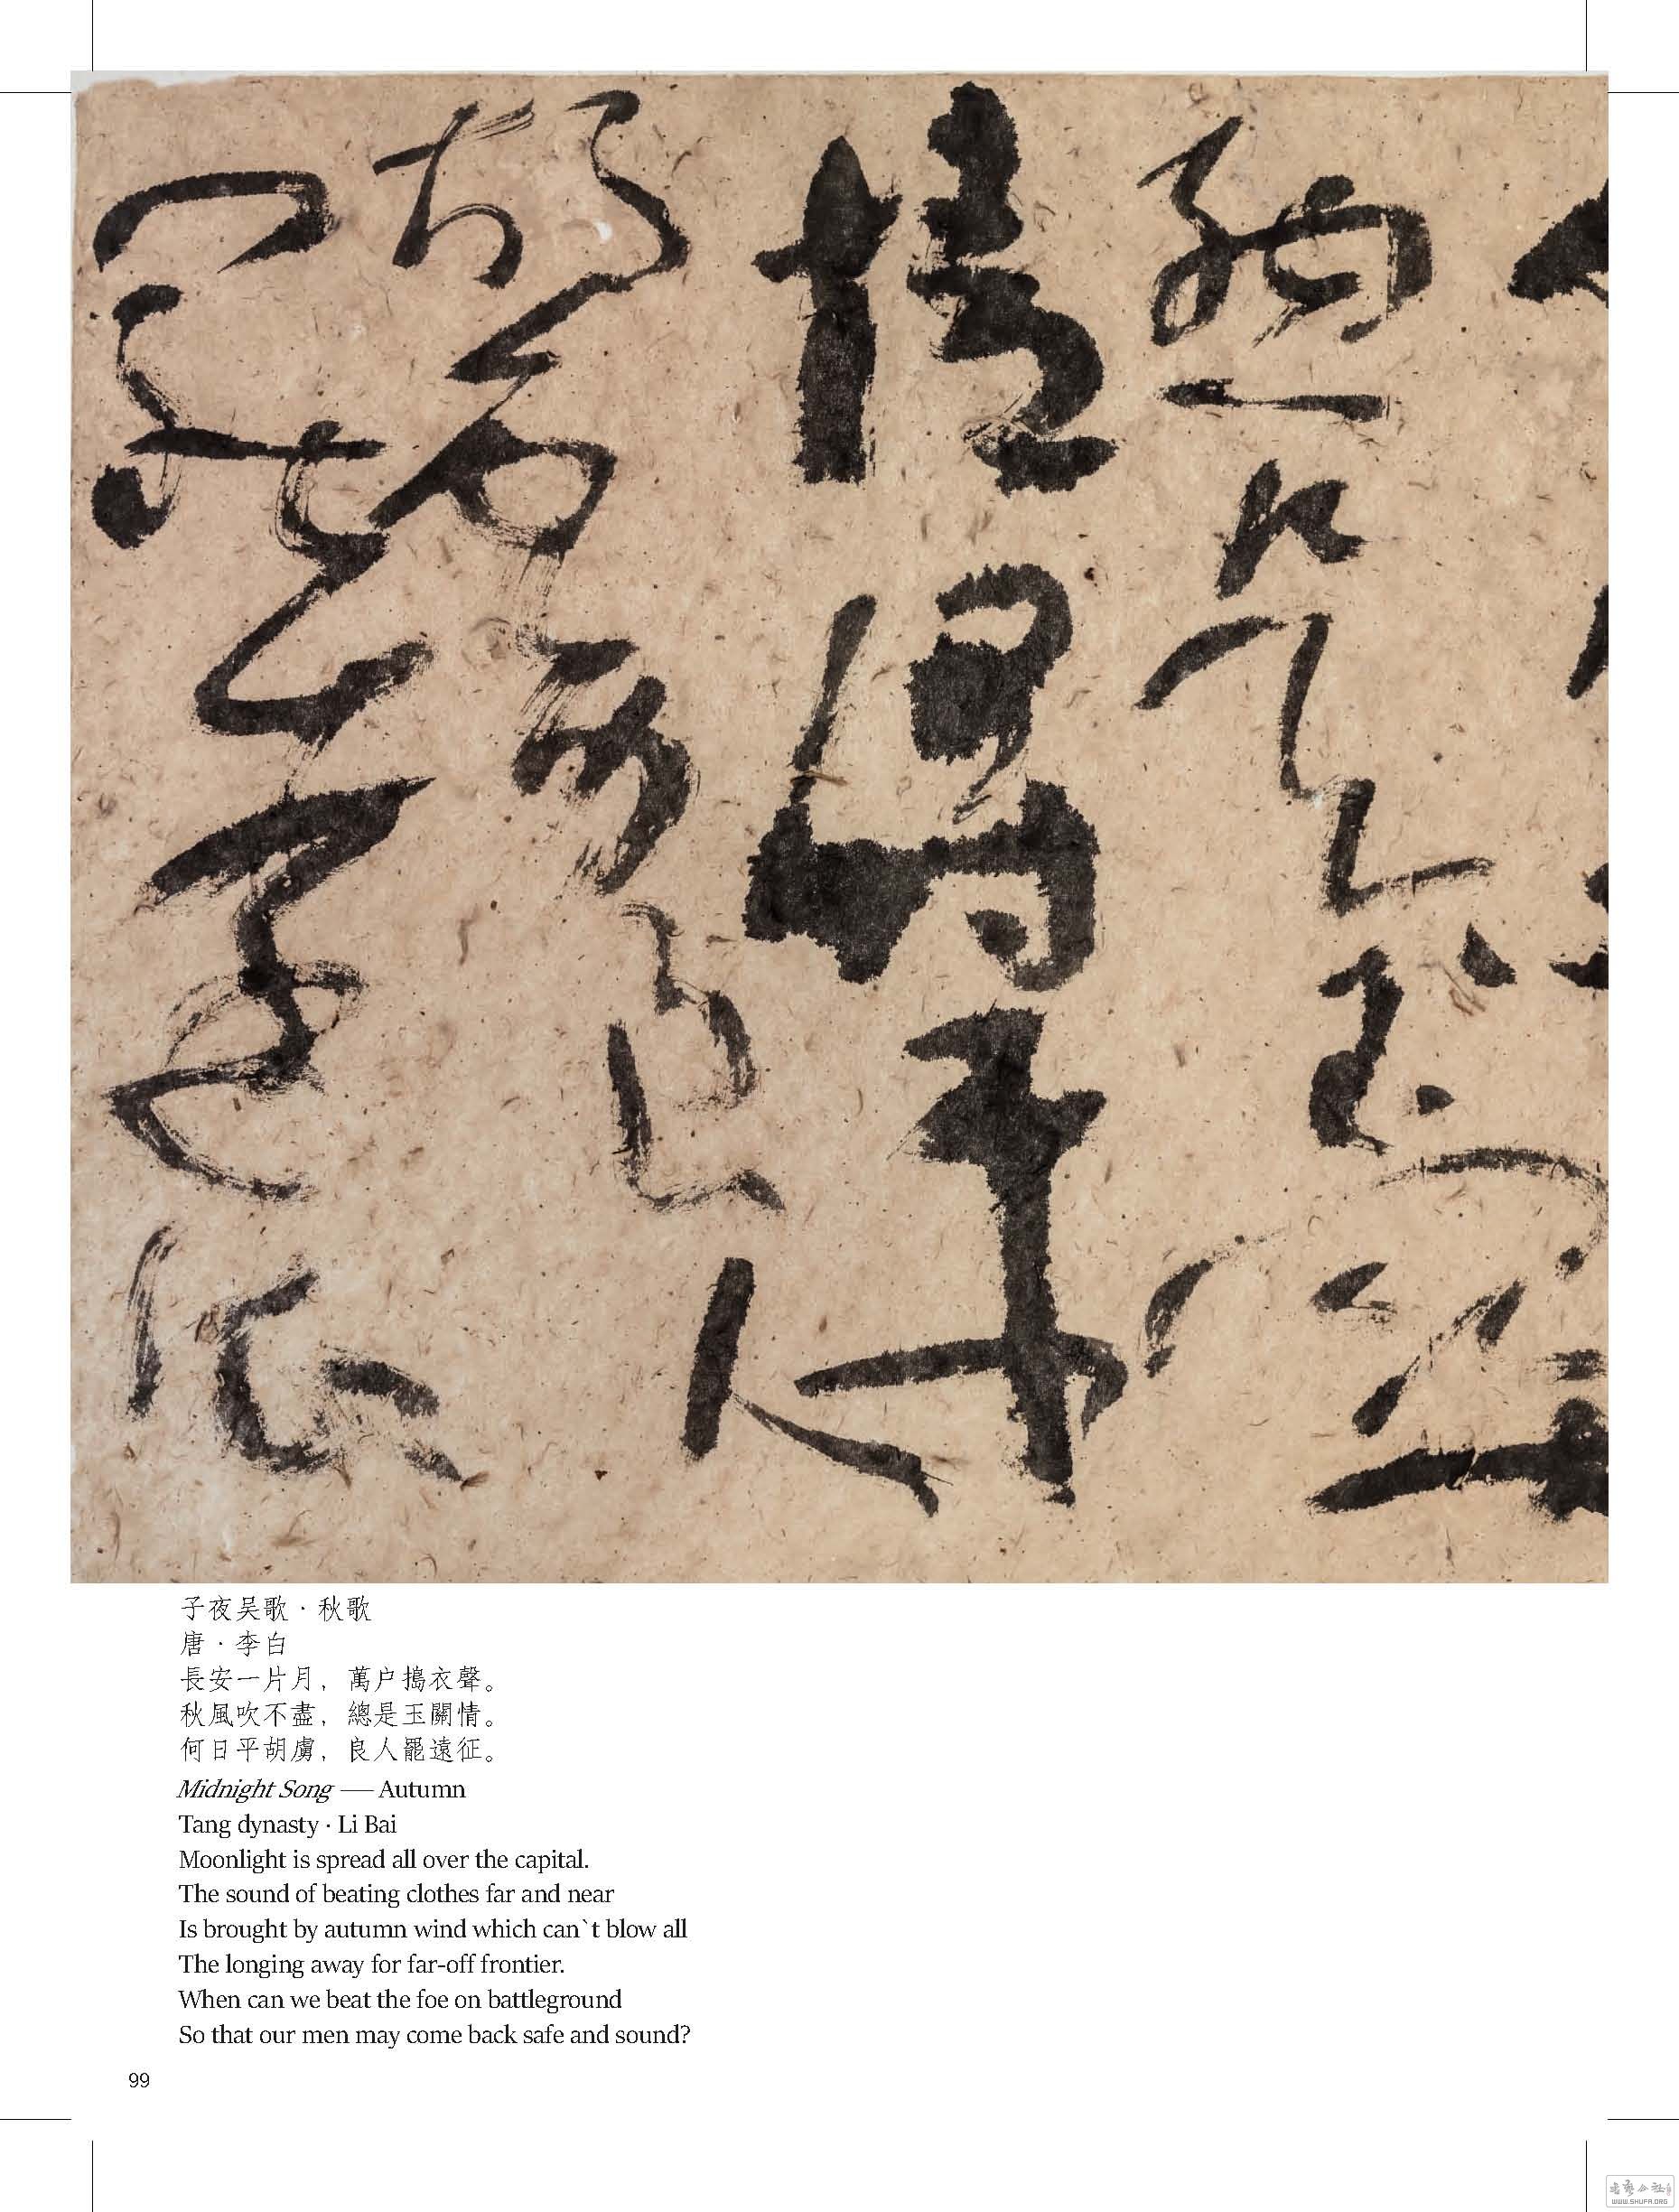 總是玉關
情何日平
胡虜良人
罷遠征
子夜吴歌·秋歌
唐·李白
長安一片月，萬户搗衣聲。
秋風吹不盡，總是玉關情。
何日平胡虜，良人罷遠征。
Midnight Song — Autumn
Tang dynasty · Li Bai
Moonlight is spread all over the capital.
The sound of beating clothes far and near
Is brought by autumn wind which can`t blow all
The longing away for far-off frontier.
When can we beat the foe on battleground
So that our men may come back safe and sound?
99
WWW.SHUFA.ORG